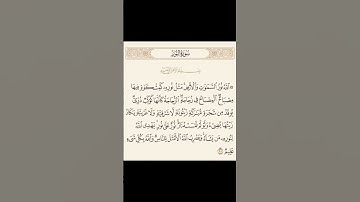 سورة النور
۞ ٱللَّهُ نُورُ ٱلسَّمَٰوَٰتِ وَٱلْأَرْضِ مَثَلُ نُورِهِۦ كَمِشْكَوٰةٍ فِيهَا
مِصْبَاحٌ ٱلْمِصْبَاحُ فِى زُجَاجَةٍ ٱلزُّجَاجَةُ كَأَنَّهَا كَوْكَبٌ دُرِّىٌّ
يُوقَدُ مِن شَجَرَةٍ مُّبَٰرَكَةٍ زَيْتُونَةٍ لَّا شَرْقِيَّةٍ وَلَا غَرْبِيَّةٍ يَكَادُ
زَيْتُهَا يُضِىٓءُ وَلَوْ لَمْ تَمْسَسْهُ نَارٌ نُّورٌ عَلَىٰ نُورٍ يَهْدِى ٱللَّهُ
لِنُورِهِۦ مَن يَشَآءُ وَيَضْرِبُ ٱللَّهُ ٱلْأَمْثَٰلَ لِلنَّاسِ وَٱللَّهُ بِكُلِّ شَىْءٍ
عَلِيمٌ